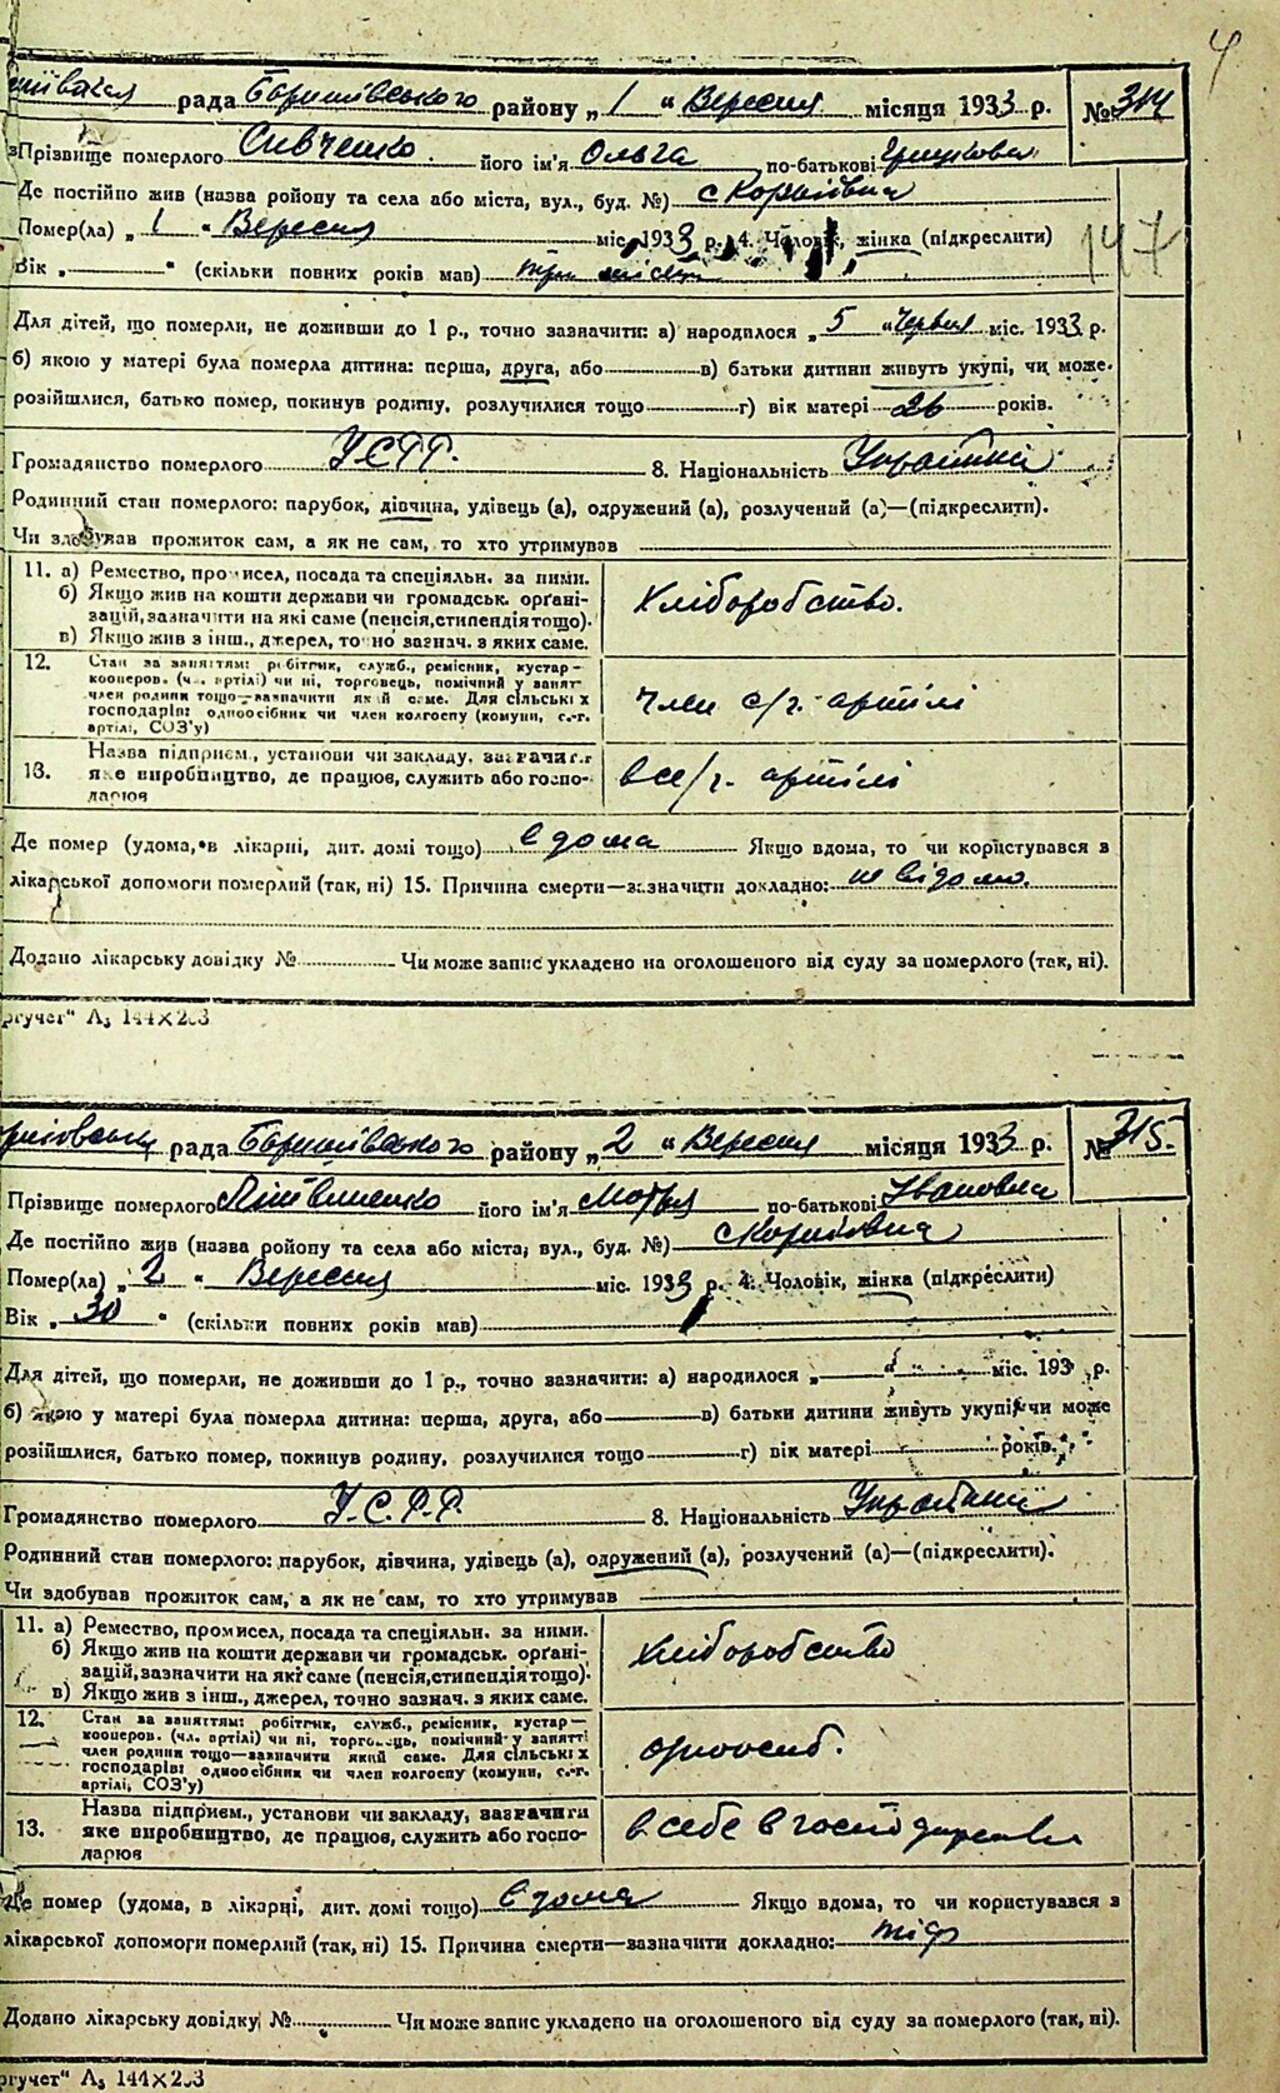 4
рада Баришівського району „ 1 " Вересня місяця 1933 р. № 314
Прізвище померлого Сивченко його ім'я Ольга по-батькові
Де постійно жив (назва ройону та села або міста, вул., буд. №) с Коржівка
Помер(ла) „ 1 " Вересня міс. 1933 р. 4. Чоловік, жінка (підкреслити)
147
Вік „ " (скільки повних років мав) три місяц
Для дітей, що померли, не доживши до 1 р., точно зазначити: а) народилося „ 5 " Червня міс. 1933 р.
б) якою у матері була померла дитина: перша, друга, або в) батьки дитини живуть укупі, чи може
розійшлися, батько помер, покинув родину, розлучилися тощо г) вік матері 26 років.
Громадянство померлого УСРР. 8. Національність
Родинний стан померлого: парубок, дівчина, удівець (а), одружений (а), розлучений (а)—(підкреслити).
Чи здобував прожиток сам, а як не сам, то хто утримував
11. а) Ремество, промисел, посада та спеціяльн. за ними.
б) Якщо жив на кошти держави чи громадськ. орґані-
зацій, зазначити на які саме (пенсія, стипендія тощо).
в) Якщо жив з інш., джерел, точно зазнач. з яких саме.
Хліборобство.
12. Стан за заняттям: робітник, служб., ремісник, кустар—
кооперов. (чл. артілі) чи ні, торговець, помічний у занятт
член родини тощо—зазначити який саме. Для сільських
господарів: одноосібник чи член колгоспу (комуни, с.-г.
артілі, СОЗ'у)
член с/г. артілі
13. Назва підприєм., установи чи закладу, зазначити
яке виробництво, де працює, служить або госпо-
дарює
в с/г. артілі
Де помер (удома, в лікарні, дит. домі тощо) в дома Якщо вдома, то чи користувався з
лікарської допомоги померлий (так, ні) 15. Причина смерти—зазначити докладно: не відомо.
Додано лікарську довідку № Чи може запис укладено на оголошеного від суду за померлого (так, ні).
ргучет" А₃ 144×203
рада Баришівського району „ 2 " Вересня місяця 1933 р. № 315.
Прізвище померлого Літвиненко його ім'я Мотря по-батькові Івановна
Де постійно жив (назва ройону та села або міста, вул., буд. №)
Помер(ла) „ 2 " Вересня міс. 1933 р. 4. Чоловік, жінка (підкреслити)
Вік „ 30 " (скільки повних років мав)
Для дітей, що померли, не доживши до 1 р., точно зазначити: а) народилося „ " міс. 193 р.
б) якою у матері була померла дитина: перша, друга, або в) батьки дитини живуть укупі, чи може
розійшлися, батько помер, покинув родину, розлучилися тощо г) вік матері років.
Громадянство померлого У.С.Р.Р. 8. Національність
Родинний стан померлого: парубок, дівчина, удівець (а), одружений (а), розлучений (а)—(підкреслити).
Чи здобував прожиток сам, а як не сам, то хто утримував
11. а) Ремество, промисел, посада та спеціяльн. за ними.
б) Якщо жив на кошти держави чи громадськ. орґані-
зацій, зазначити на які саме (пенсія, стипендія тощо).
в) Якщо жив з інш., джерел, точно зазнач. з яких саме.
Хліборобство
12. Стан за заняттям: робітник, служб., ремісник, кустар—
кооперов. (чл. артілі) чи ні, торговець, помічний у занятті
член родини тощо—зазначити який саме. Для сільських
господарів: одноосібник чи член колгоспу (комуни, с.-г.
артілі, СОЗ'у)
одноосиб.
13. Назва підприєм., установи чи закладу, зазначити
яке виробництво, де працює, служить або госпо-
дарює
в себе в господарстві
Де помер (удома, в лікарні, дит. домі тощо) в дома Якщо вдома, то чи користувався з
лікарської допомоги померлий (так, ні) 15. Причина смерти—зазначити докладно: тіф
Додано лікарську довідку № Чи може запис укладено на оголошеного від суду за померлого (так, ні).
ргучет" А₃ 144×203